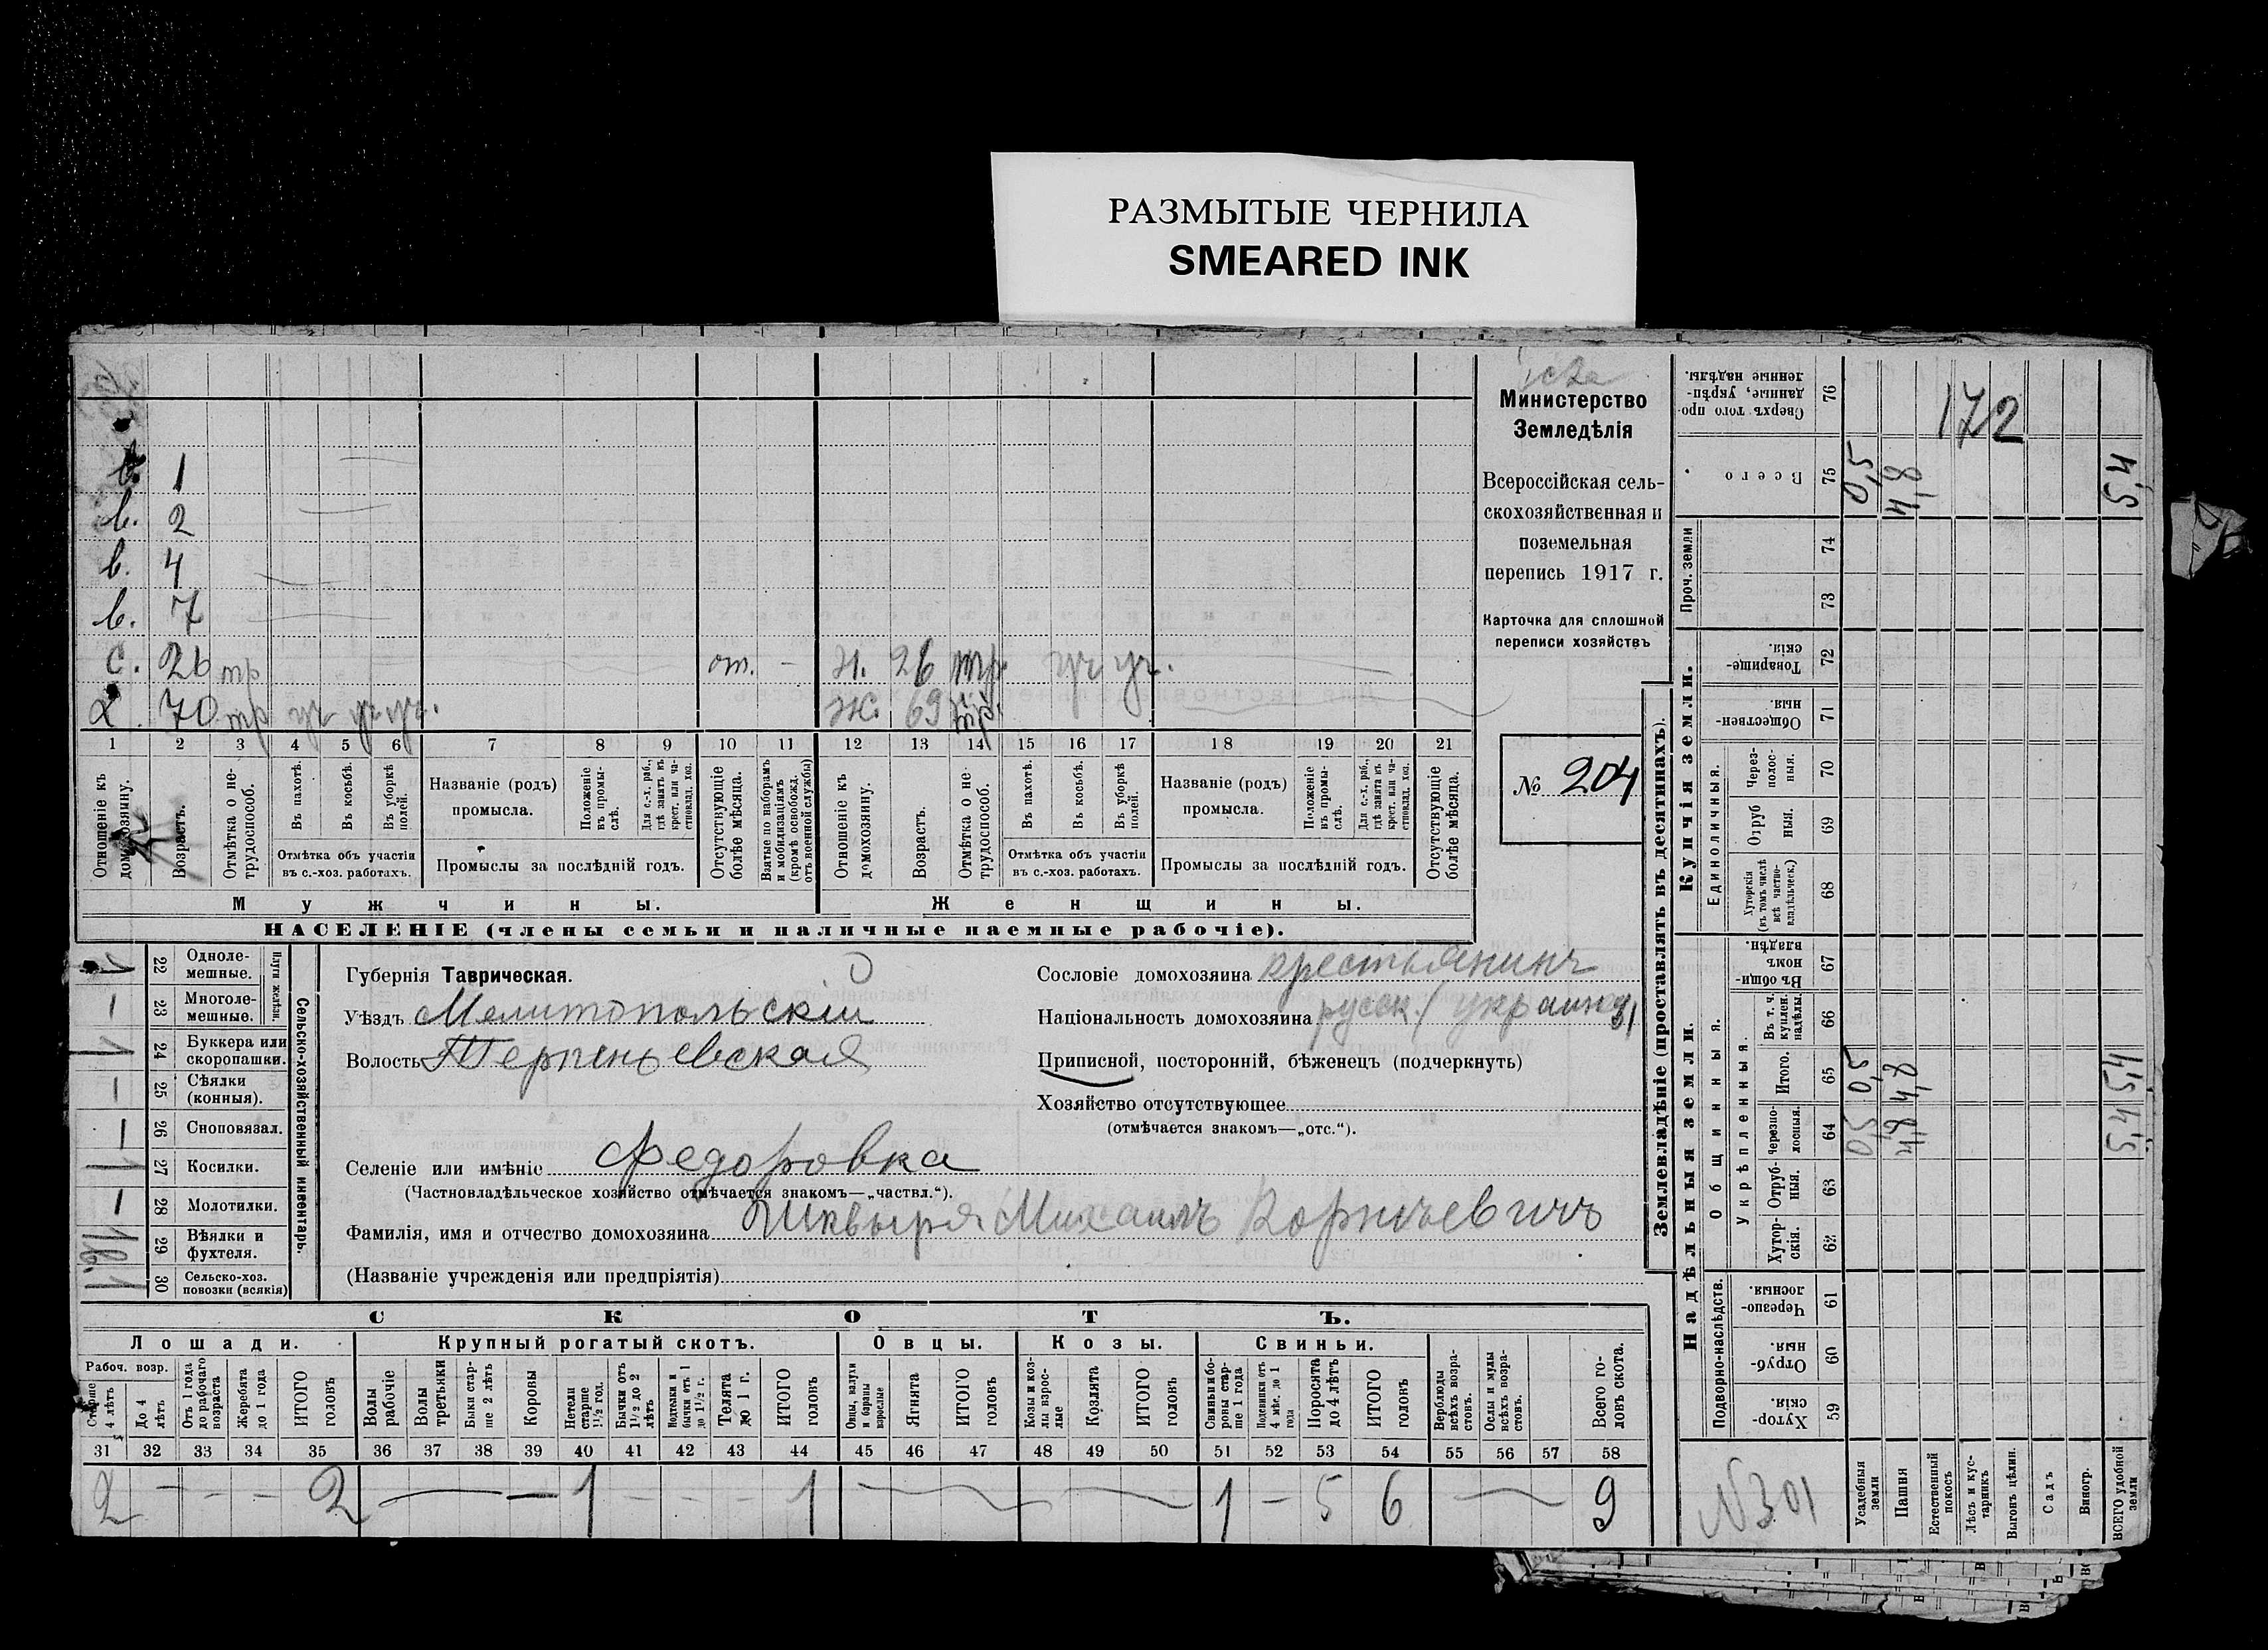 РАЗМЫТЫЕ ЧЕРНИЛА
SMEARED INK
Министерство
Земледѣлія
Всероссійская сель-
скохозяйственная и
поземельная
перепись 1917 г.
Карточка для сплошной
переписи хозяйствъ
№ 204
1
в. 2
в. 4
в. 7
с. 26 тр от. – н. 26 тр. уч уч.
х. 70 тр уч уч уч. ж. 69 тр.
1 2 3 4 5 6 7 8 9 10 11 12 13 14 15 16 17 18 19 20 21
Отношеніе къ домохозяину.
Возрастъ.
Отмѣтка о не-трудоспособ.
Въ пахотѣ.
Въ косьбѣ.
Въ уборкѣ полей.
Отмѣтка объ участіи въ с.-хоз. работахъ.
Названіе (родъ) промысла.
Положеніе въ промы-слѣ.
Для с.-х. раб., гдѣ занятъ въ крест. или ча-стновлад. хоз.
Промыслы за послѣдній годъ.
Отсутствующіе болѣе мѣсяца.
Взятые по наборамъ и мобилизаціямъ (кромѣ освобожд. отъ военной службы)
Отношеніе къ домохозяину.
Возрастъ.
Отмѣтка о не-трудоспособ.
Въ пахотѣ.
Въ косьбѣ.
Въ уборкѣ полей.
Отмѣтка объ участіи въ с.-хоз. работахъ.
Названіе (родъ) промысла.
Положеніе въ промы-слѣ.
Для с.-х. раб., гдѣ занята въ крест. или ча-стновлад. хоз.
Промыслы за послѣдній годъ.
Отсутствующіе болѣе мѣсяца.
Мужчины. Женщины.
НАСЕЛЕНІЕ (члены семьи и наличные наемные рабочіе).
Сельско-хозяйственный инвентарь.
Плуги желѣзн.
22 Одноле-мешные.
23 Многоле-мешные.
24 Буккера или скоропашки.
25 Сѣялки (конныя).
26 Сноповязал.
27 Косилки.
28 Молотилки.
29 Вѣялки и фухтеля.
30 Сельско-хоз. повозки (всякія)
Губернія Таврическая.
Уѣздъ Мелитопольскій
Волость Терпеньевская
Селеніе или имѣніе Федоровка
(Частновладѣльческое хозяйство отмѣчается знакомъ—„частвл.“).
Фамилія, имя и отчество домохозяина Шквыря Михаилъ Корнѣевичъ
(Названіе учрежденія или предпріятія)
Сословіе домохозяина крестьянинъ
Національность домохозяина русск.
Приписной, посторонній, бѣженецъ (подчеркнуть)
Хозяйство отсутствующее
(отмѣчается знакомъ—„отс.“).
СКОТЪ.
Лошади. Крупный рогатый скотъ. Овцы. Козы. Свиньи.
Рабоч. возр.
Старше 4 лѣтъ
До 4 лѣтъ
Отъ 1 года до рабочаго возраста
Жеребята до 1 года
ИТОГО головъ
Волы рабочіе
Волы третьяки
Быки стар-ше 2 лѣтъ
Коровы
Нетели старше 1½ год.
Бычки отъ 1½ до 2 лѣтъ
Подтелки и бычки отъ 1 до 1½ г.
Телята до 1 г.
ИТОГО головъ
Овцы, валухи и бараны взрослые
Ягнята
ИТОГО головъ
Козы и коз-лы взрос-лые
Козлята
ИТОГО головъ
Свиньи и бо-ровы стар-ше 1 года
Подсвинки отъ 4 мѣс. до 1 года
Поросята до 4 лѣтъ
ИТОГО головъ
Верблюды всѣхъ возра-стовъ.
Ослы и мулы всѣхъ возра-стовъ.
Всего го-ловъ скота.
31 32 33 34 35 36 37 38 39 40 41 42 43 44 45 46 47 48 49 50 51 52 53 54 55 56 57 58
2 – – – 2 — – 1 – – – 1 1 – 5 6 9
Землевладѣніе (проставлять въ десятинахъ).
Надѣльныя земли. Купчія земли. Проч. земли
Подворно-наслѣдств.
Общинныя.
Укрѣпленныя.
Единоличныя.
59 Хутор-скія
60 Отруб-ныя.
61 Черезпо-лосныя.
62 Хутор-скія.
63 Отруб-ныя.
64 Черезпо-лосныя.
65 Итого.
66 Въ т. ч. куплен. надѣлы.
67 Въ общин-номъ владѣн.
68 Хуторскія (въ томъ числѣ всѣ частно-владѣльческ.)
69 Отруб ныя.
70 Через-полос-ныя.
71 Обществен-ныя
72 Товарище-скія.
73
74
75 Всего
76 Сверхъ того про-данные, укрѣп-ленные надѣлы.
Усадебныя земли
Пашня
Естественный покосъ
Лѣсъ и кус-тарникъ
Выгонъ цѣлин.
Садъ
Виногр.
ВСЕГО удобной земли
172
0,5
4,8
N301